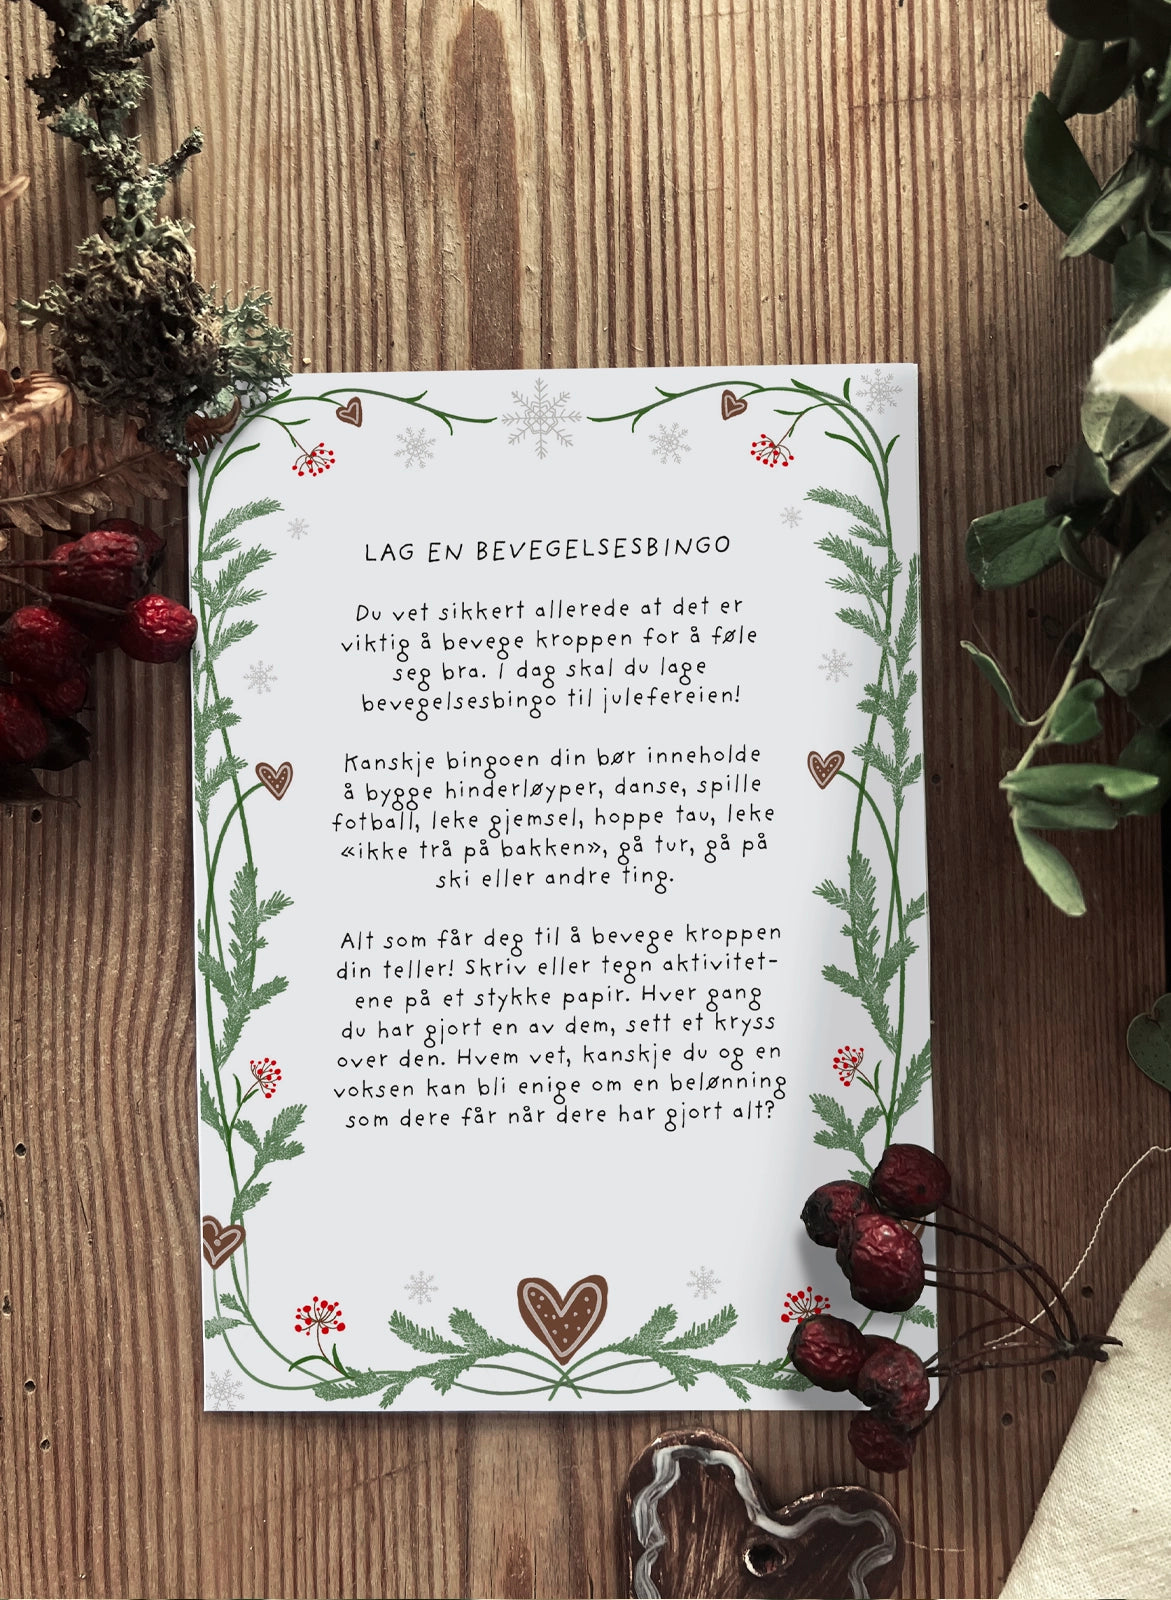 LAG EN BEVEGELSESBINGO
Du vet sikkert allerede at det er
viktig å bevege kroppen for å føle
seg bra. I dag skal du lage
bevegelsesbingo til julefereien!
Kanskje bingoen din bør inneholde
å bygge hinderløyper, danse, spille
fotball, leke gjemsel, hoppe tau, leke
«ikke trå på bakken», gå tur, gå på
ski eller andre ting.
Alt som får deg til å bevege kroppen
din teller! Skriv eller tegn aktivitet-
ene på et stykke papir. Hver gang
du har gjort en av dem, sett et kryss
over den. Hvem vet, kanskje du og en
voksen kan bli enige om en belønning
som dere får når dere har gjort alt?